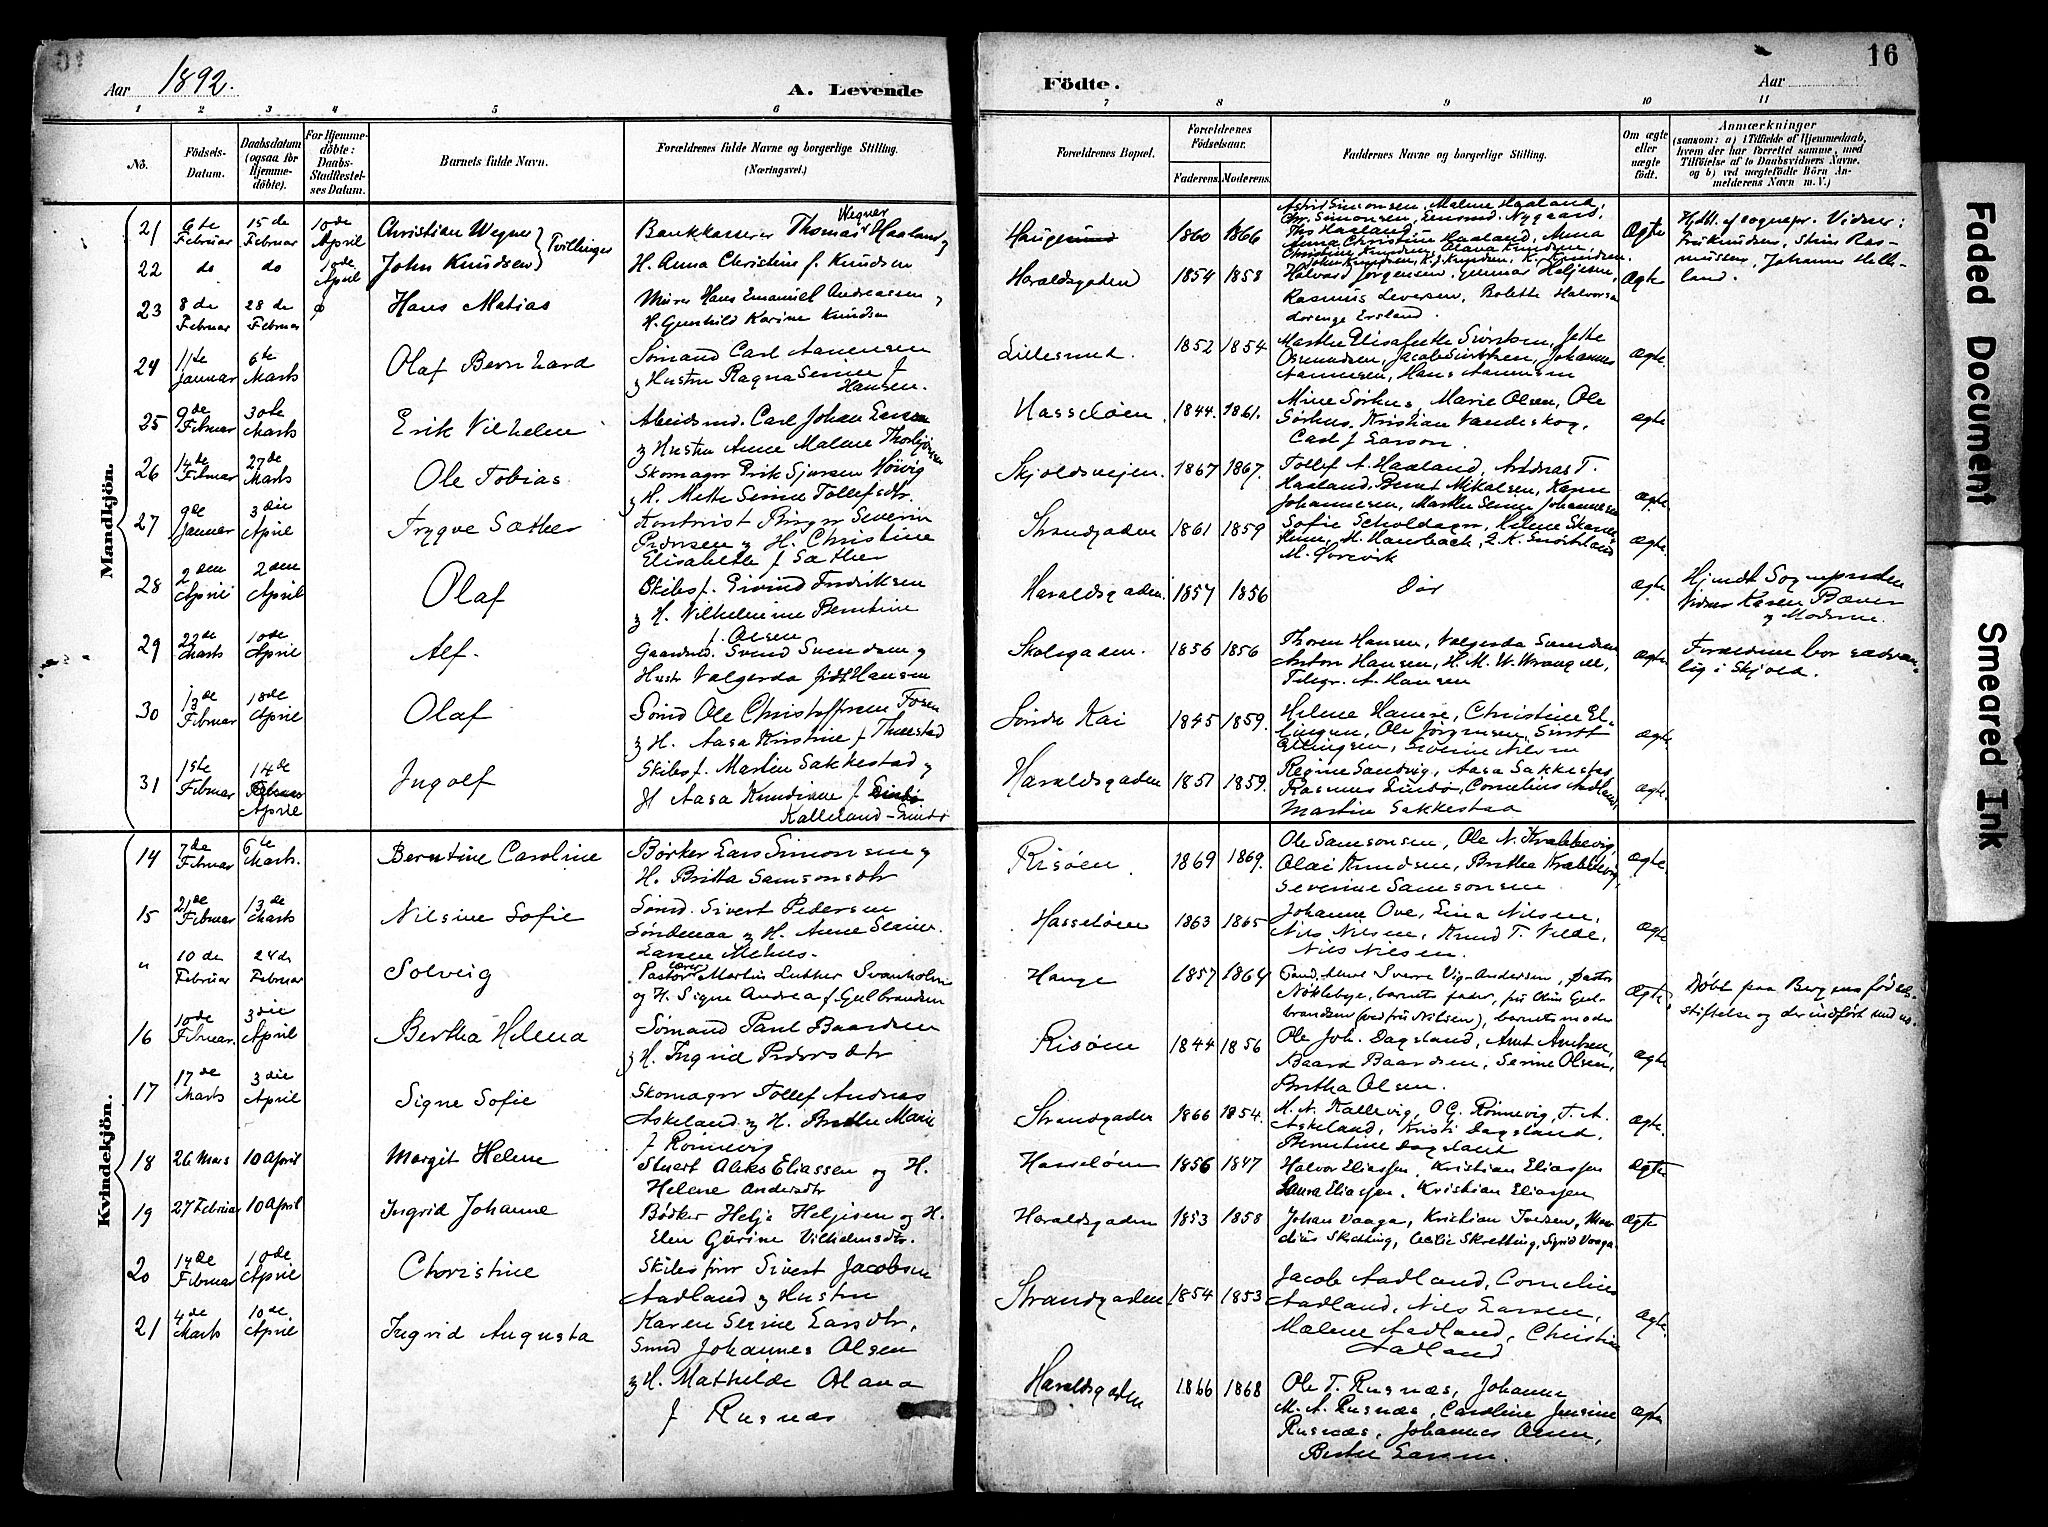 16
Aar 1892.
A. Levende
Födte.
Aar
1 2 3 4 5 6 7 8 9 10 11
Nö.
Födsels-
Datum.
Daabsdatum
(ogsaa för
Hjemme-
döbte).
For Hjemme-
döbte:
Daabs-
Stadfæstel-
ses Datum.
Barnets fulde Navn.
Forældrenes fulde Navne og borgerlige Stilling.
(Næringsvei.)
Forældrenes Bopæl.
Forældrenes
Födselsaar.
Faderens. Moderens.
Faddernes Navne og borgerlige Stilling.
Om ægte
eller
uægte
födt.
Anmærkninger
(saasom: a) i Tilfælde af Hjemmedaab,
hvem der har forrettet samme, med
Tilföielse af to Daabsvidners Navne,
og b) ved uægtefödte Börn An-
melderens Navn m. V.)
Mandkjön.
21 6te Februar 15de Februar 10de April Christian Wegner Tvillinger Bankkasserer Thomas Wegner Haaland
Haugesund 1860 1866
Astrid Simonsen, Malene Haaland,
Chr. Simonsen, Nygaard,
Ths Haaland
Anna Christine Haaland, Anna
Christine Knudsen, Olava Knudsen,
John Knudsen, K. J. Knudsen, K. Knudsen
Ægte
Hdbt. af sognepr. Vidner:
Frk Knudsen, Stine Ras-
mussen, Johanne Helle-
land.
22 do do 10de April John Knudsen H. Anna Christine f. Knudsen
23 8de Februar 28de Februar Hans Matias Murer Hans Emanuel Andreassen
H. Gunhild Karine Knudsen
Haraldsgaden 1854 1858
Halvard Jørgensen, Gunnar Heljesen,
Rasmus Leversen, Bolette Halvorsen
Lorenze Ersland.
Ægte
24 11te Januar 6te Marts Olaf Bernhard Sømand Carl Aanensen
& Hustru Ragna Serine f.
Hansen.
Lillesund. 1852 1854
Marthe Elisabeth
Osmundsen, Jacob Johannes
Aanensen, Hans Aanensen
Ægte
25 9de Februar 30te Marts Erik Vilhelm Arbeidsmd. Carl Johan Larson
& Hustru Anne Malene Thorbjörnsen
Hasseløen 1844. 1861.
Mine Sørhus, Marie Olsen, Ole
Sørhus, Kristian Vandeskog,
Carl J. Larson.
ægte
26 14de Februar 27de Marts Ole Tobias Skomagr Erik Sjursen Hövig
& H. Mette Serine Tollefsdtr.
Skjoldsvejen. 1867 1867.
Tollef A. Haaland, Andreas T.
Haaland, Bernt Mikalsen, Karen
Johannesen, Marthe Serine Johannesen
ægte
27 9de Januar 3die April Trygve Sæther Kontorist Birger Severin
Pedersen & H. Christine
Elisabeth f. Sæther
Strandgaden 1861 1859
Sofie Scholdager, Helene
M. Hansback,
M. Øvrevik
ægte.
28 2den April 2den April Olaf Skibsf. Eivind Fredriksen
& H. Vilhelmine Berntine
f. Olsen
Haraldsgaden 1857 1856
Død
ægte
Hjmdt Sognepresten
Vidner Karen Bæver
& Moderen.
29 22de Marts 10de April Alf. Gaardmd. Svend Svendsen &
Hustr Valgerda født Hansen
Skolegaden. 1856 1856
Thoren Hansen, Valgerda Svendsen
Anton Hansen, H. M. W. Wrangell,
Telegr. A. Hansen
ægte
Forældrene bor sædvan-
lig i Skjold.
30 13de Februar 18de April Olaf Sømd Ole Christoffersen Fosen
& H. Aasa Kristine f. Thuestad
Søndre Kai 1845 1859.
Helene Hansen, Christine El-
lingsen, Ole Jørgensen,
Ellingsen, Severine Nilsen
ægte.
31 1ste Februar 14de April Ingolf Skibsf. Martin Sakkestad &
H Aasa Knudiane f.
Kalleland-
Haraldsgaden 1851 1859.
Regine Sandvig, Aasa Sakkestad
Rasmus Cornelius Aadland
Martin Sakkestad
ægte.
Kvindekjön.
14 7de Februar 6te Marts. Berntine Caroline Bødker Lars Simonsen &
H. Britta Samsonsdtr
Risøen. 1869 1869.
Ole Samsonsen, Ole N. Krabbevig,
Olai Knudsen, Britha Krabbevig,
Severine Samsonsen
ægte.
15 21de Februar 13de Marts Nilsine Sofie Sømd. Sivert Pedersen
Søndenaa & H. Anne Serine
Larsen Mehus.
Hasseløen 1863 1865
Johanne Ove, Lina Nilsen,
Nils Nilsen, Knud T. Velde,
Nils Nilsen.
ægte
" 10de Februar 24de Februar Solveig Pastor Martin Luther Svanholm
og H. Signe Andrea f. Gulbrandsen
Hauge 1857 1864
Sverre Vig-Andersen, Pastor
Nøklebye, barnets fader, frk Olise Gul-
brandsen (ved frk Nilsen), barnets moder
ægte.
Døbt paa Bergens føds.
stiftelse og der indført med no.
16 10de Februar. 3die April Bertha Helena Sømand Paul Baardsen
& H. Ingrid Pedersdtr
Risøen 1844 1856
Ole Joh. Dagsland, Amt Amtsen,
Baard Baardsen, Serine Olsen,
Britha Olsen.
ægte
17 17de Marts 3die April Signe Sofie Skomagr Tollef Andreas
Askeland & H. Berthe Marie
f. Rönnevig
Strandgaden 1866 1854.
M. N. Kallevig, O G. Rönnevig, T. A.
Askeland, Kristi Dagsland,
Berntine Dagsland
ægte.
18 26 Mars 10 April Margit Helene Stuert Aleks Eliassen og H.
Helene Andersdtr
Hasseløen 1856 1847
Halvor Eliassen, Kristian Eliassen
Laura Eliassen, Kristian Eliassen
ægte
19 27 Februar 10 April Ingrid Johanne Bødker Helje Heljesen og H.
Elen Gurine Vilhelmsdtr.
Haraldsgaden 1853 1858
Johan Vaaga, Kristian Iversen, Man-
dius Skretting, Cecilie Skretting, Sigrid Vaaga
ægte
20 14de Februar 10de April Christine Skibsfører Sivert Jacobsen
Aadland & Hustru
Karen Serine Larsdtr,
Strandgaden 1854 1853
Jacob Aadland, Cornelius
Aadland, Nils Larsen,
Malene Aadland, Christine
Aadland
ægte.
21 4de Marts 10de April Ingrid Augusta Smed Johannes Olsen
& H. Mathilde Olava
f. Rusnæs
Haraldsgaden 1866 1868
Ole T. Rusnæs, Johanne
M. A. Rusnæs, Caroline Jensine
Rusnæs, Johannes Olsen,
Berthe Larsen.
ægte
Faded Document
Smeared Ink